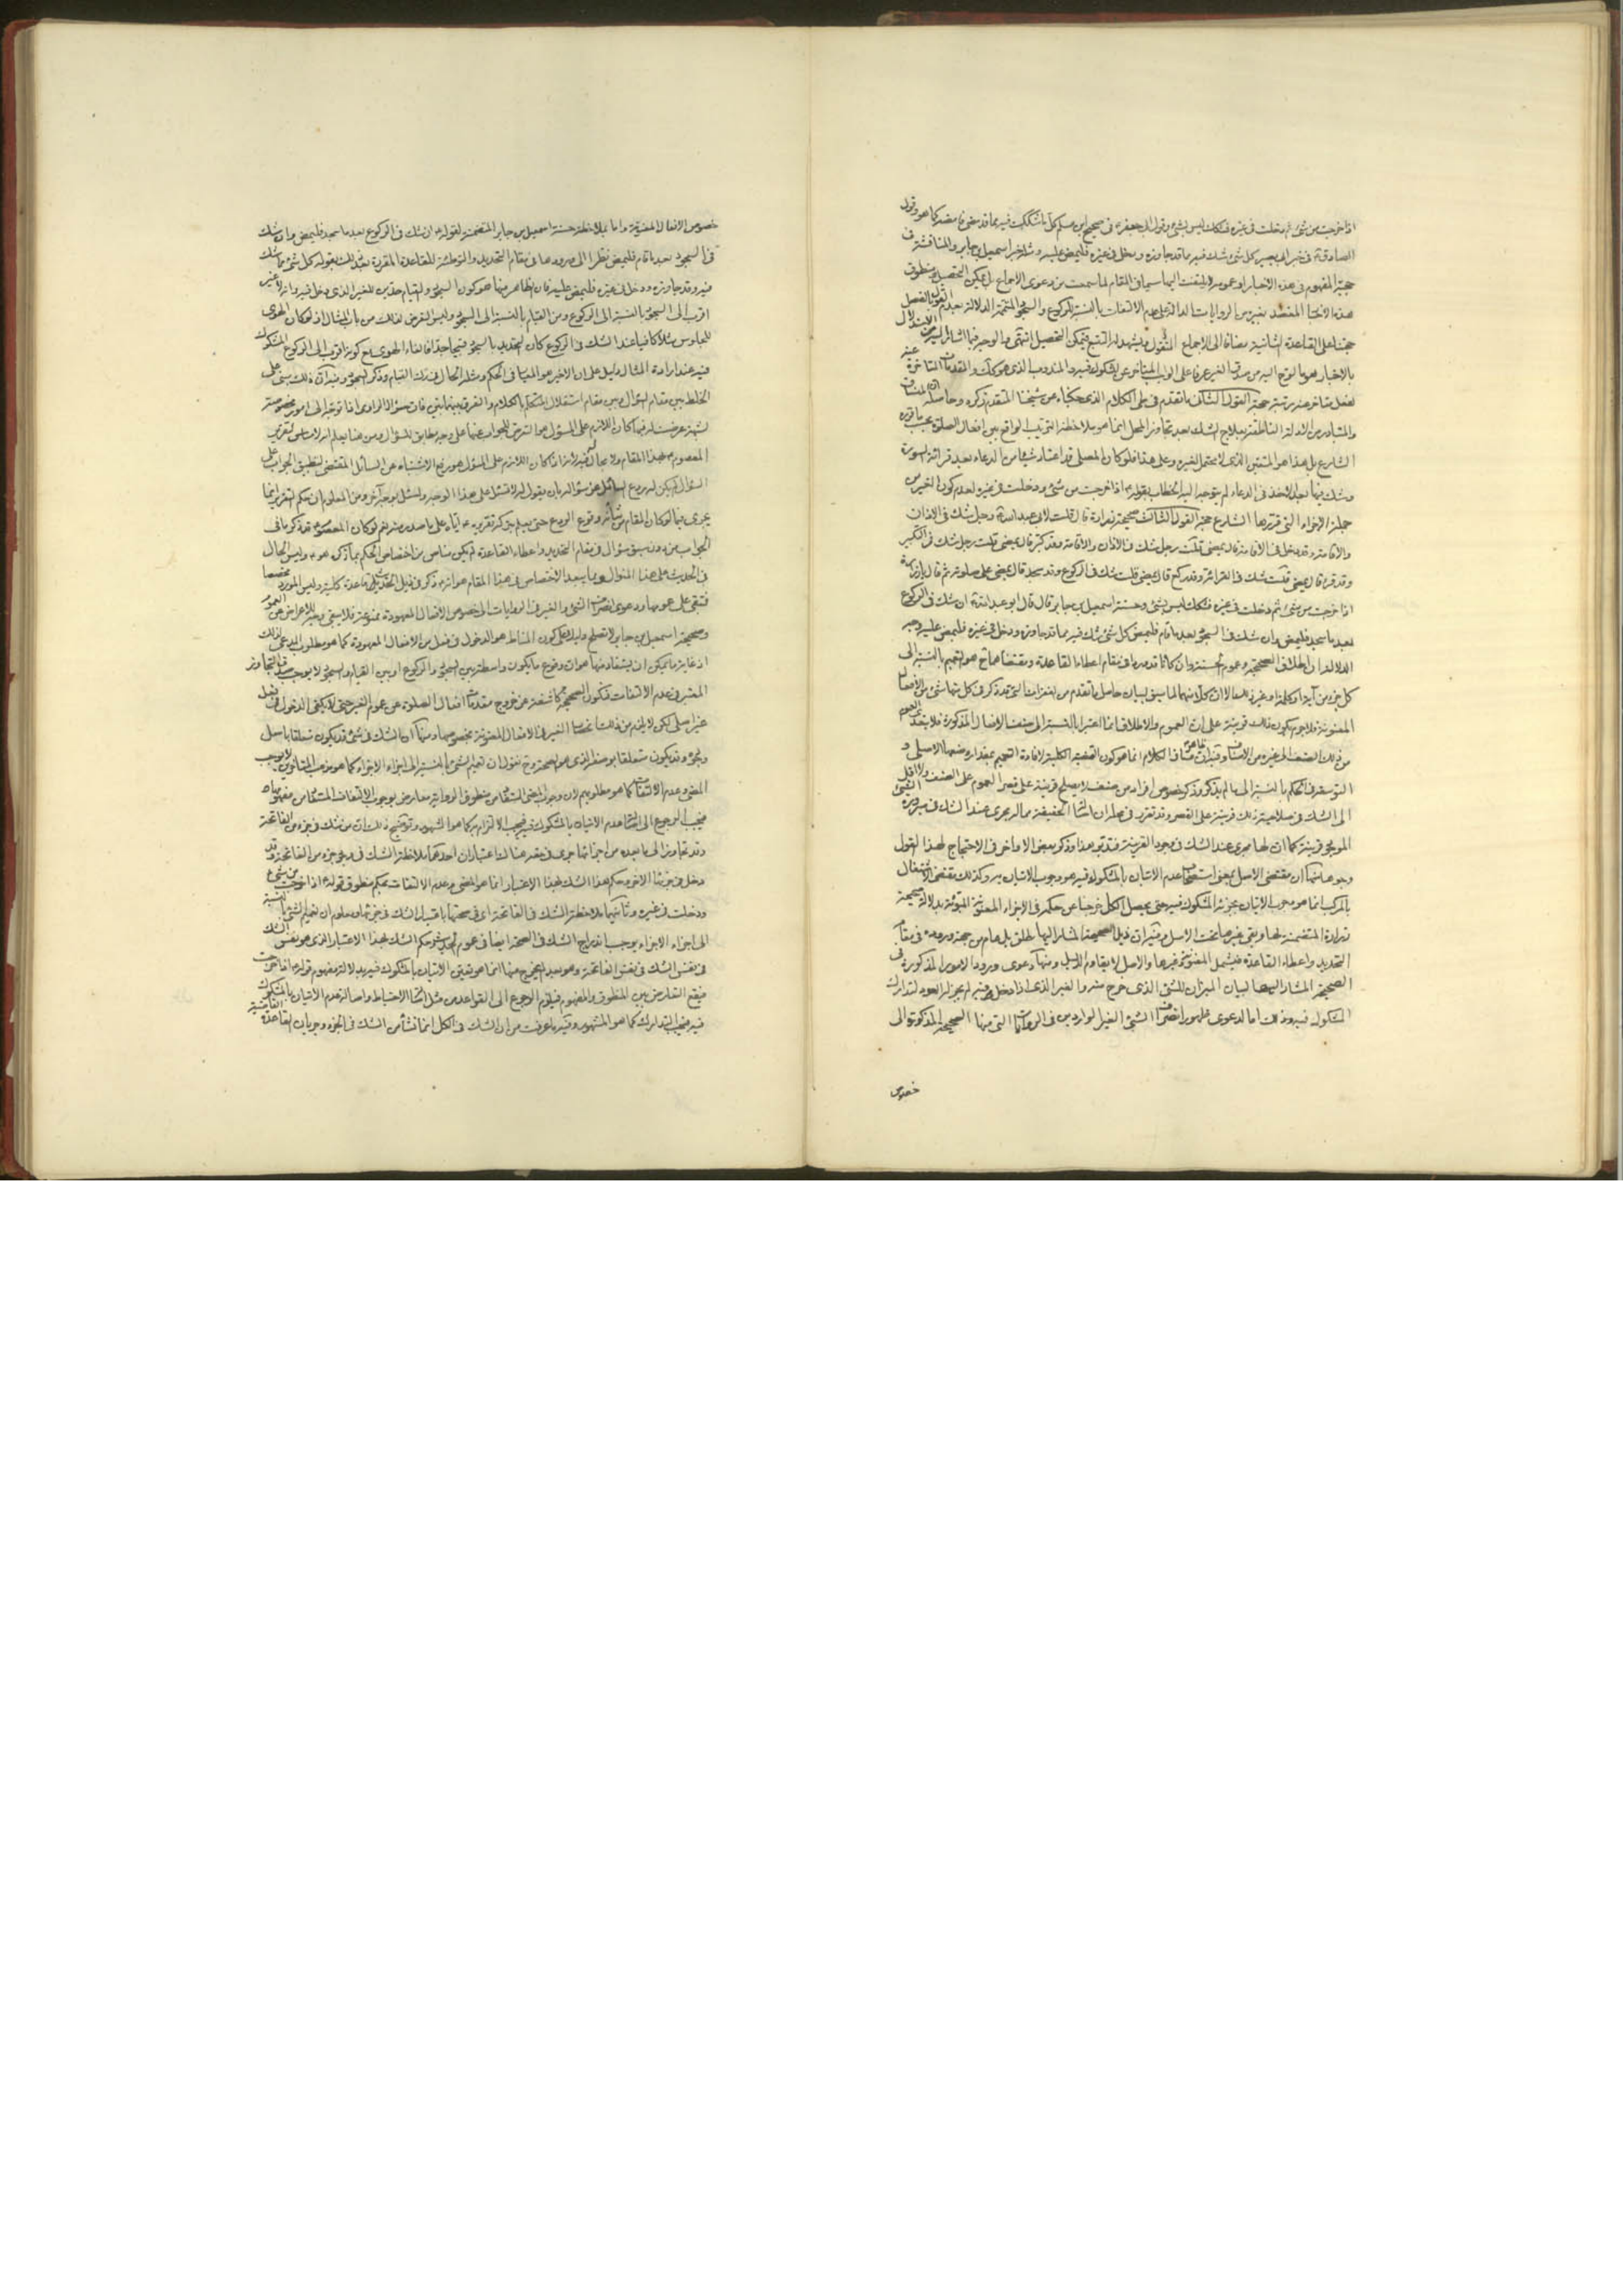 اذا خرجت من شئ ثم دخلت في غيره فشكك ليس بشئ وقول ابي جعفر ع في صحيح ابن مسلم كل ما شككت فيه مما قد مضى فامضه كما هو وقول
الصادق ع في خبر ابي بصير كل شئ شك فيه مما قد جاوزه ودخل في غيره فليمض عليه ومثله خبر اسمعيل بن جابر والمناقشة في
حجية المفهوم في هذه الاخبار او عمومه لا يلتفت اليها سيما في المقام لما سمعت من دعوى الاجماع بل يمكن التحصيل منطوق
هذه الاخبار المعتضد بغيره من الروايات الدالة على عدم الالتفات بالنسبة للركوع والسجود المتممة الدلالة بعدم القول بالفصل
حجتنا على القاعدة الثانية مضافا الى الاجماع المنقول ويشهد له التتبع فيمكن التحصيل انتهى والوجه فيما اشار اليه من الاستدلال
بالاخبار هو ما لوح اليه من صدق الغير عرفا على الواجب المتأخر عن المشكوك فيه والمندوب الذي هو كك والمقدمات المتأخرة عنه
لفعل متأخر عنه مرتبة حجة القول الثاني ما تقدم في طي الكلام الذي حكيناه عن شيخنا المتقدم ذكره وحاصله ان المنساق
والمتبادر من الادلة الناطقة بعلاج الشك بعد تجاوز المحل انما هو ملاحظة الترتيب الواقع بين افعال الصلوة بحسب ما قرره
الشارع بل هذا هو المتيقن الذي لا يحتمل لغيره وعلى هذا فلو كان المصلي قد اعتاد شيئا من الدعاء بعد قرائة السورة
وشك فيها بعد الاخذ في الدعاء لم يتوجه اليه الخطاب بقوله ع اذا خرجت من شئ ودخلت في غيره لعدم كون الغير من
جملة الاجزاء التي قررها الشارع حجة القول الثالث صحيحة زرارة قال قلت لابي عبد الله ع رجل شك في الاذان
والاقامة وقد دخل في الاقامة قال يمضي قلت رجل شك في الاذان والاقامة وقد كبر قال يمضي قلت رجل شك في التكبير
وقد قرء قال يمضي قلت شك في القرائة وقد ركع قال يمضي قلت شك في الركوع وقد سجد قال يمضي على صلوته ثم قال يا زرارة
اذا خرجت من شئ ثم دخلت في غيره فشكك ليس بشئ وحسنة اسمعيل بن جابر قال قال ابو عبد الله ع ان شك في الركوع
بعد ما سجد فليمض وان شك في السجود بعد ما قام فليمض كل شئ شك فيه مما قد جاوزه ودخل في غيره فليمض عليه وجه
الدلالة ان اطلاق الصحيحة وعموم الحسنة وان كانا قد وردا في مقام اعطاء القاعدة ومقتضاهما ح هو التعميم بالنسبة الى
كل جزء من آية او كلمة او غيرهما الا ان كلا منهما لما سبق لبيان حاصل ما تقدم من الفقرات التي قد ذكر في كل منها شئ من الافعال
المعنونة فلا جرم يكون ذلك قرينة على ان العموم والاطلاق انما اعتبرا بالنسبة الى صنف الافعال المذكورة فلا يتعدى العموم
من ذلك الصنف الى غيره من الاصناف وفيه ان مساق الكلام انما هو كون القضية الكلية لافادة التعميم بمقدار وضعها الاصلي و
التوسعة في الحكم بالنسبة الى ما لم يذكر وذكر خصوص افراد من صنف لا يصلح قرينة على قصر العموم على الصنف ولا اقل
الى الشك في صلاحية ذلك قرينة على القصر وقد تقرر في محله ان اصالة الحقيقة مما لا يجري عند الشك في صيرورة الشئ
الموجود قرينة كما ان لها مجرى عند الشك في وجود القرينة فتدبر هذا وذكر بعض الاواخر في الاحتجاج لهذا القول
وجوها منها ان مقتضى الاصل بمعنى استصحاب عدم الاتيان بالمشكوك فيه هو وجوب الاتيان به وكذلك مقتضى الاشتغال
بالمركب انما هو وجوب الاتيان بجزئه المشكوك فيه حتى يحصل الكل خرجنا عن حكمه في الاجزاء المعنونة المبوبة بدلالة صحيحة
زرارة المتضمنة لها وبقي غيرها تحت الاصل وفيه ان ذيل الصحيحة المشار اليها مطلق بل عام من جهة وروده في مقام
التحديد واعطاء القاعدة فيشمل المعنونة وغيرها والاصل لا يقاوم الدليل ومنها دعوى ورود الامور المذكورة في
الصحيحة المشار اليها لبيان الميزان للشئ الذي خرج منه والغير الذي اذا دخل فيه لم يجز له العود لتدارك
المشكوك فيه وذلك اما لدعوى ظهور انصراف الشئ والغير الواردين في الروايات التي منها الصحيحة المذكورة الى
خصوص
خصوص الافعال المعنونة واما بملاحظة حسنة اسمعيل بن جابر المتضمنة لقوله ع ان شك في الركوع بعد ما سجد فليمض وان شك
في السجود بعد ما قام فليمض نظرا الى صدورها في مقام التحديد والتوطئة للقاعدة المقررة بعد ذلك بقوله كل شئ مما شك
فيه وقد جاوزه ودخل في غيره فليمض عليه فان الظاهر منها هو كون السجود والقيام حدين للغير الذي دخل فيه وانه لا غير
اقرب الى السجود بالنسبة الى الركوع ومن القيام بالنسبة الى السجود وليس التعرض لذلك من باب المثال اذ لو كان الهوى
للجلوس مثلا كافيا عند الشك في الركوع كان التحديد بالسجود قبيحا جدا فالغاء الهوى مع كونه اقرب الى الركوع المشكوك
فيه عند ارادة المثال دليل على ان الاخير هو المناط في الحكم ومثله الحال في ترك القيام وذكر السجود وفيه ان ذلك مبني على
الخلط بين مقام السؤال وبين مقام استقلال المتكلم بالكلام والفرق بينهما بين فان سؤال الراوي اذا توجه الى امور مخصوصة
لشبهة عرضت له فيها كان اللازم على المسؤل هو التعرض للجواب عنها على وجه يطابق السؤال ومن هنا يعلم انه لا مساس لتقرير
المعصوم ع بهذا المقام ولا مجال فيه لانه اذا كان اللازم على المسؤل هو رفع الاشتباه عن السائل المقتضي لتطبيق الجواب على
السؤال لم يكن له ردع السائل عن سؤاله بان يقول له لا تسئل على هذا الوجه واسئل بوجه آخر ومن المعلوم ان حكم التقرير انما
يجري فيما لو كان المقام من شأنه وقوع الردع حتى يعلم بتركه تقريره ع اياه على ما صدر منه نعم لو كان المعصوم ع قد ذكر ما في
الجواب من دون سبق سؤال في مقام التحديد واعطاء القاعدة لم يكن مناص من اختصاص الحكم بما ذكره هو ع وليس الحال
في الحديث على هذا المنوال ومما يبعد الاختصاص في هذا المقام هو انه ع ذكر في ذيل الحديث قاعدة كلية وليس المورد مخصصا
فتبقى على عمومها ودعوى انصراف الشئ والغير في الروايات الى خصوص الافعال المعهودة ممنوعة فلا يبقى وجه للاعراض عن العموم
وصحيحة اسمعيل بن جابر لا تصلح دليلا على كون المناط هو الدخول في فعل من الافعال المعهودة كما هو مطلوب المدعي لذلك
اذ غاية ما يمكن ان يستفاد منها هو ان وقوع ما يكون واسطة بين السجود والركوع او بين القيام والسجود لا يوجب صدق التجاوز
المعتبر في عدم الالتفات فتكون الصحيحة كاشفة عن خروج مقدمات افعال الصلوة عن عموم الغير حتى لا يكفي الدخول في فعل
غير اصلي لكن لا يلزم من ذلك انحصار الغير في الافعال المعنونة بخصوصها ومنها ان الشك في شئ قد يكون متعلقا باصل
وجوده وقد يكون متعلقا بوصفه الذي هو الصحة وح نقول ان تعميم الشئ بالنسبة الى اجزاء الاجزاء كما هو مذهب القائلين لا يوجب
المضي وعدم الالتفات كما هو مطلوبهم لان وجوب المضي المستفاد من منطوق الرواية معارض بوجوب الالتفات المستفاد من مفهومها
فيجب الرجوع الى اصالة عدم الاتيان بالمشكوك فيه فيجب الالتزام به كما هو المشهور وتوضيح ذلك ان من شك في جزء من الفاتحة
وقد تجاوز الى ما بعده من اجزائها جرى في حقه هناك اعتباران احدهما ملاحظة الشك في وجود جزء من الفاتحة وقد
دخل في جزئها الآخر وحكم هذا الشك بهذا الاعتبار انما هو المضي وعدم الالتفات بحكم منطوق قوله ع اذا خرجت من شئ
ودخلت في غيره وثانيهما ملاحظة الشك في الفاتحة اي في صحتها باعتبار الشك في جزئها ومعلوم ان تعميم الشئ بالنسبة
الى اجزاء الاجزاء يوجب اندراج الشك في الصحة ايضا في عموم الحديث وحكم الشك بهذا الاعتبار الذي هو نفس الشك
في نفس الشك في نفس الفاتحة وهو بعد لم يخرج منها انما هو تعين الاتيان بالمشكوك فيه بدلالة مفهوم قوله ع اذا خرجت
فيقع التعارض بين المنطوق والمفهوم فيلزم الرجوع الى القواعد من مثل اصالة الاحتياط واصالة عدم الاتيان بالمشكوك
فيه فيجب التدارك كما هو المشهور وفيه ما عرفت من ان الشك في الكل انما نشأ من الشك في الجزء وجريان القاعدة القاضية